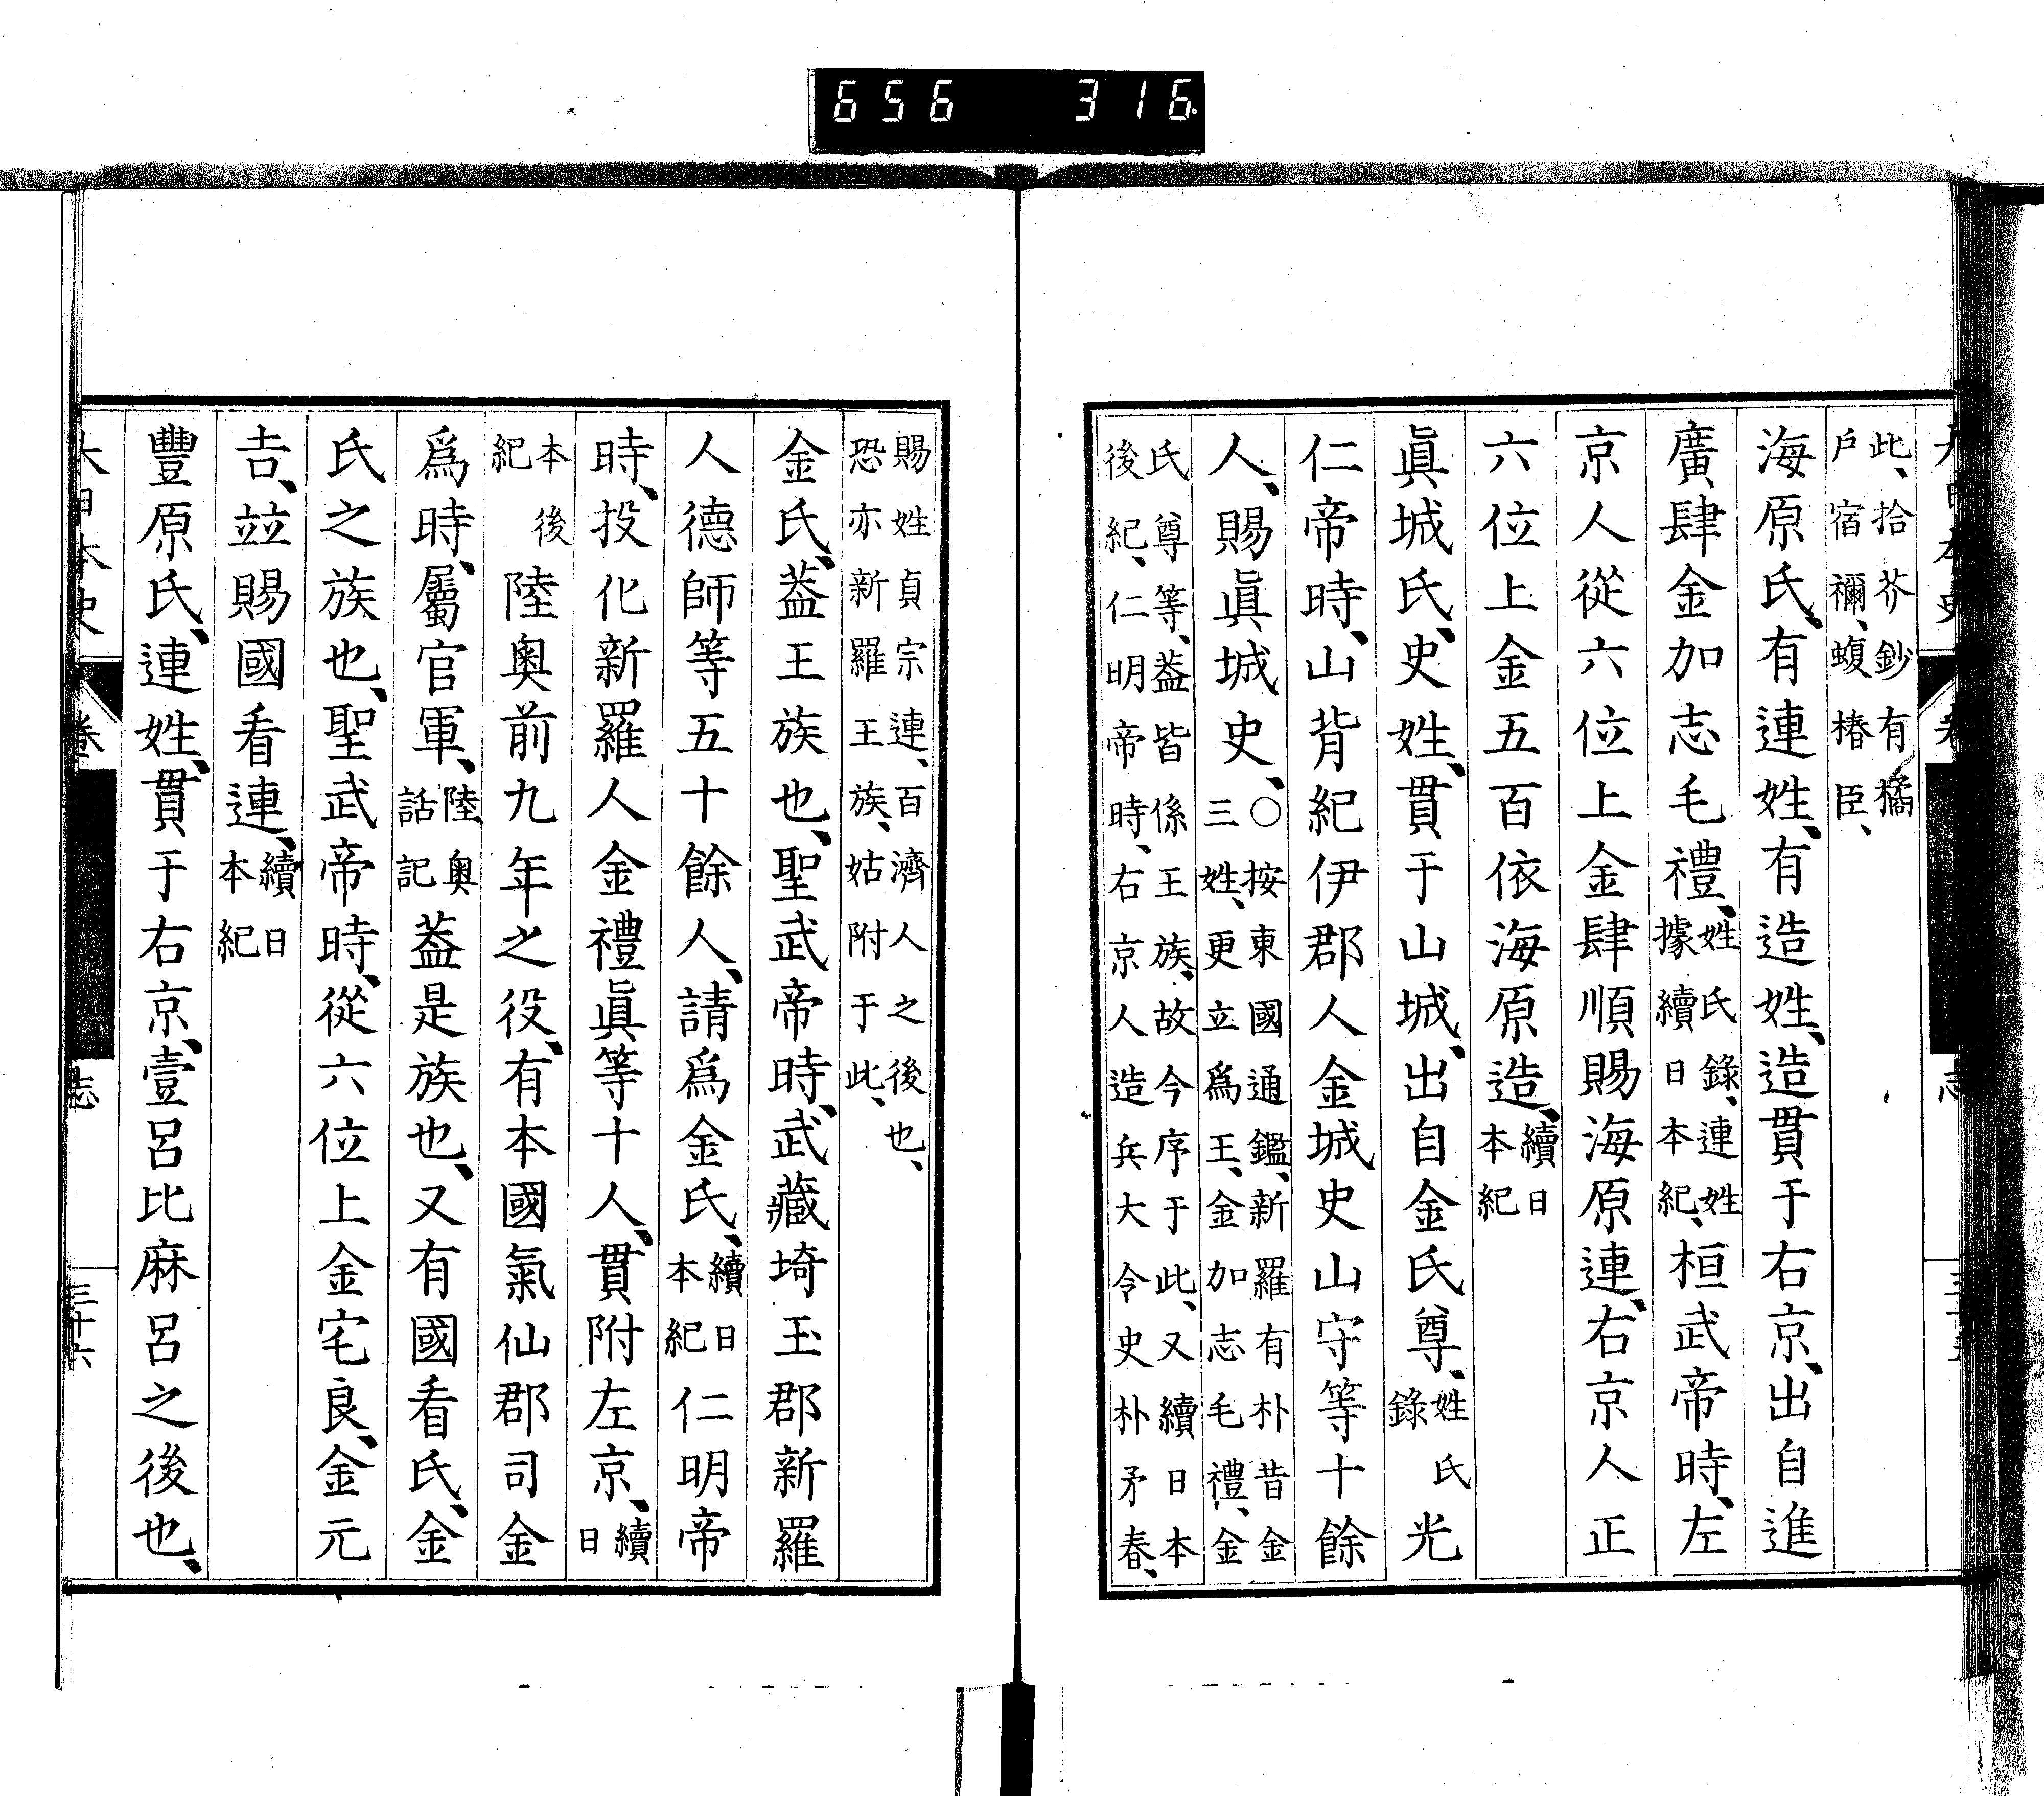 656 316
此、拾芥鈔有橘
戶宿禰、蝮椿臣、
海原氏、有連姓、有造姓、造貫于右京、出自進
廣肆金加志毛禮、姓氏錄、連姓
據續日本紀、桓武帝時、左
京人從六位上金肆順賜海原連、右京人正
六位上金五百依海原造、續日
本紀
眞城氏、史姓、貫于山城、出自金氏尊、姓氏
錄光
仁帝時、山背紀伊郡人金城史山守等十餘
人、賜眞城史、○按東國通鑑、新羅有朴昔金
三姓、更立爲王、金加志毛禮、金
氏尊等、蓋皆係王族、故今序于此、又續日本
後紀、仁明帝時、右京人造兵大令史朴矛春、
賜姓貞宗連、百濟人之後也、
恐亦新羅王族、姑附于此、
金氏、蓋王族也、聖武帝時、武藏埼玉郡新羅
人德師等五十餘人、請爲金氏、續日
本紀仁明帝
時、投化新羅人金禮眞等十人、貫附左京、續
日
本後
紀陸奧前九年之役、有本國氣仙郡司金
爲時、屬官軍、陸奧
話記蓋是族也、又有國看氏、金
氏之族也、聖武帝時、從六位上金宅良、金元
吉、竝賜國看連、續日
本紀
豐原氏、連姓、貫于右京、壹呂比麻呂之後也、
大日本史 卷 志 三十六